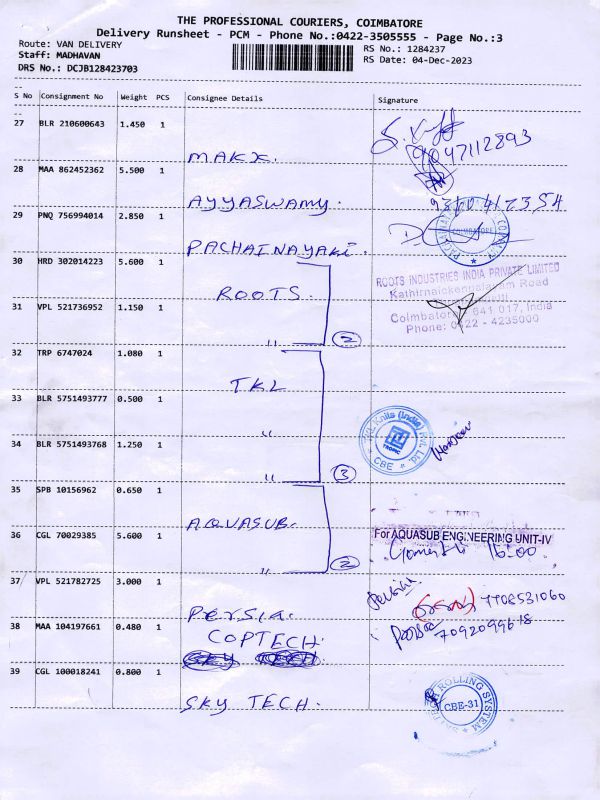 THE PROFESSIONAL COURIERS, COIMBATORE
Delivery Runsheet - PCM - Phone No.:0422-3505555 - Page No.:3
Route: VAN DELIVERY RS No.: 1284237
Staff: MADHAVAN RS Date: 04-Dec-2023
DRS No.: DCJB128423703
S No Consignment No Weight PCS Consignee Details Signature
27 BLR 210600643 1.450 1
MAKX. 9047112893
28 MAA 862452362 5.500 1
AYYASWAMY.
29 PNQ 756994014 2.850 1
PACHAINAYAKI. COIMBATORE
30 HRD 302014223 5.600 1
ROOTS. ROOTS INDUSTRIES INDIA PRIVATE LIMITED
Kathirnaickenpalayam Road
31 VPL 521736952 1.150 1
Coimbatore 641 017, India
Phone: 0422 - 4235000
" 2
32 TRP 6747024 1.080 1
TKL
33 BLR 5751493777 0.500 1
Knits (India) Pvt. Ltd.
TROPIC
CBE
"
34 BLR 5751493768 1.250 1
" 3
35 SPB 10156962 0.650 1
AQUASUB.
36 CGL 70029385 5.600 1
For AQUASUB ENGINEERING UNIT-IV
16:00
" 2
37 VPL 521782725 3.000 1
PERSIA. 7708531060
38 MAA 104197661 0.480 1
COPTECH 7092099618
39 CGL 100018241 0.800 1
SKY TECH.
ROLLING SYSTEM
CBE-31